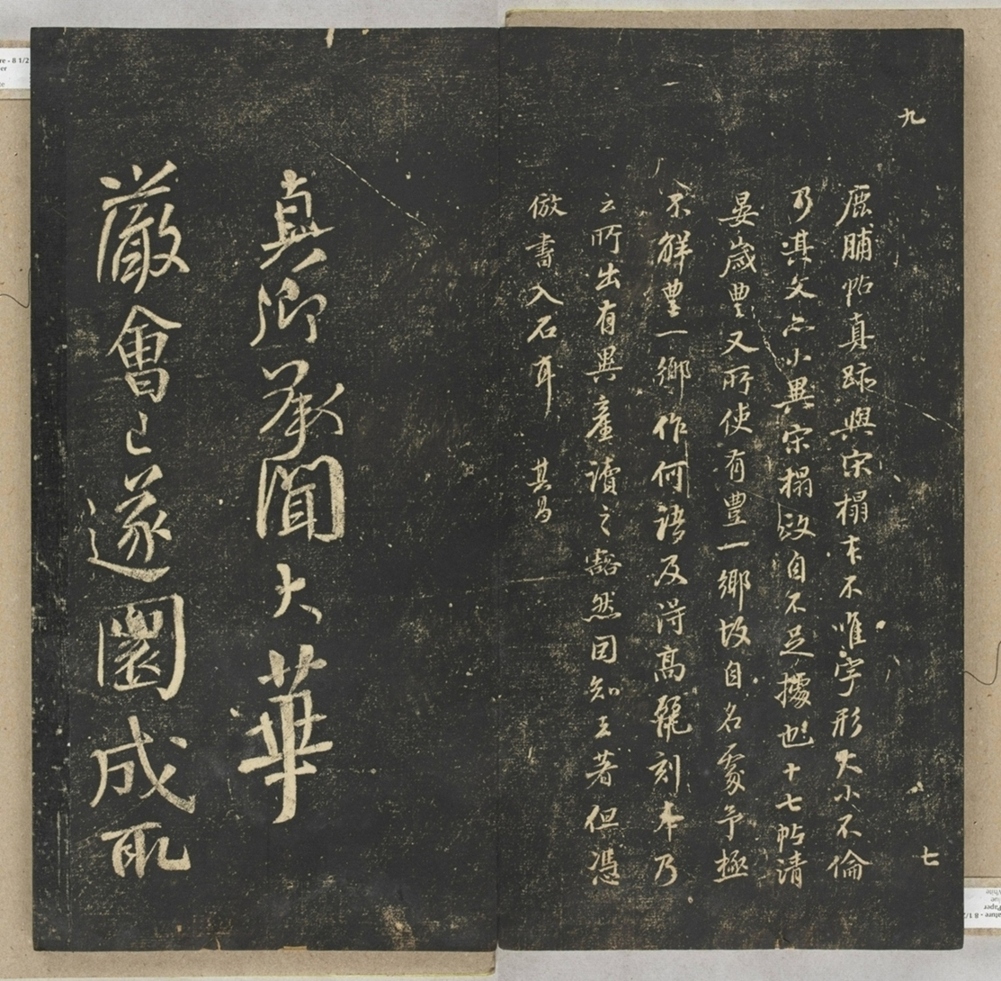 九
七
鹿脯帖真跡與宋榻本不唯字形大小不倫
乃其文亦小異宋榻故自不足據也十七帖清
晏歲豐又所使有豐一鄉故自名處予極
不解豐一鄉作何語及淂高麗刻本乃
云所出有異產讀之豁然因知王著但憑
倣書入石耳 其昌
真卿承聞大華
嚴會已遂圓成取